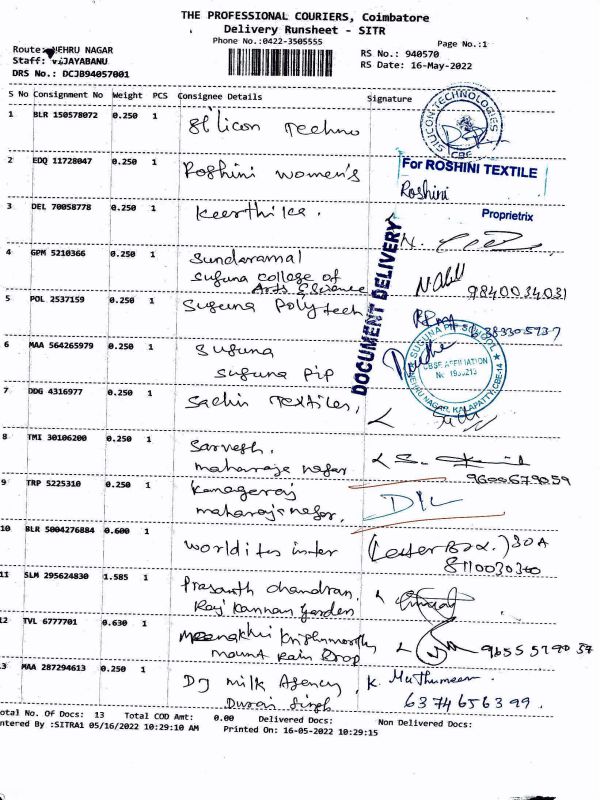 THE PROFESSIONAL COURIERS, Coimbatore
Delivery Runsheet - SITR
Phone No.:0422-3505555
Page No.:1
Route: NEHRU NAGAR
RS No.: 940570
Staff: VIJAYABANU
RS Date: 16-May-2022
DRS No.: DCJB94057001
S No Consignment No Weight PCS Consignee Details Signature
1 BLR 150578072 0.250 1 Silicon Techno
SILICON TECHNOLOGIES
CBE
2 EDQ 11728047 0.250 1 Roshini women's
For ROSHINI TEXTILE
Roshini
Proprietrix
3 DEL 70058778 0.250 1 Keerthika.
DOCUMENT DELIVERY
4 GPM 5210366 0.250 1 Sundaramal
Suguna College of
Arts & Science
9840034031
5 POL 2537159 0.250 1 Suguna Polytech
6 MAA 564265979 0.250 1 Suguna
Suguna pip
SUGUNA PIP SCHOOL
CBSE AFFILIATION
No 1930213
NEHRU NAGAR, KALAPATTY, CBE-14
7 DDG 4316977 0.250 1 Sachin Textiles,
8 TMI 30106200 0.250 1 Sarvesh.
maharaja nagar
9600679059
9 TRP 5225310 0.250 1 Kanagaraj
maharaja nagar,
D/L
10 BLR 5004276884 0.600 1 World itis inter
(Letter Box.) 30A
8110030300
11 SLM 295624830 1.585 1 Prasanth chandran,
Raj Kannan Garden
12 TVL 6777701 0.630 1 Meenakhi Krishnmorthy
mount Rain Drop
9655529037
13 MAA 287294613 0.250 1 DJ milk Agency,
Durai Singh
K. Muthumeen
6374656399.
Total No. Of Docs: 13 Total COD Amt: 0.00 Delivered Docs: Non Delivered Docs:
Entered By :SITRA1 05/16/2022 10:29:10 AM Printed On: 16-05-2022 10:29:15